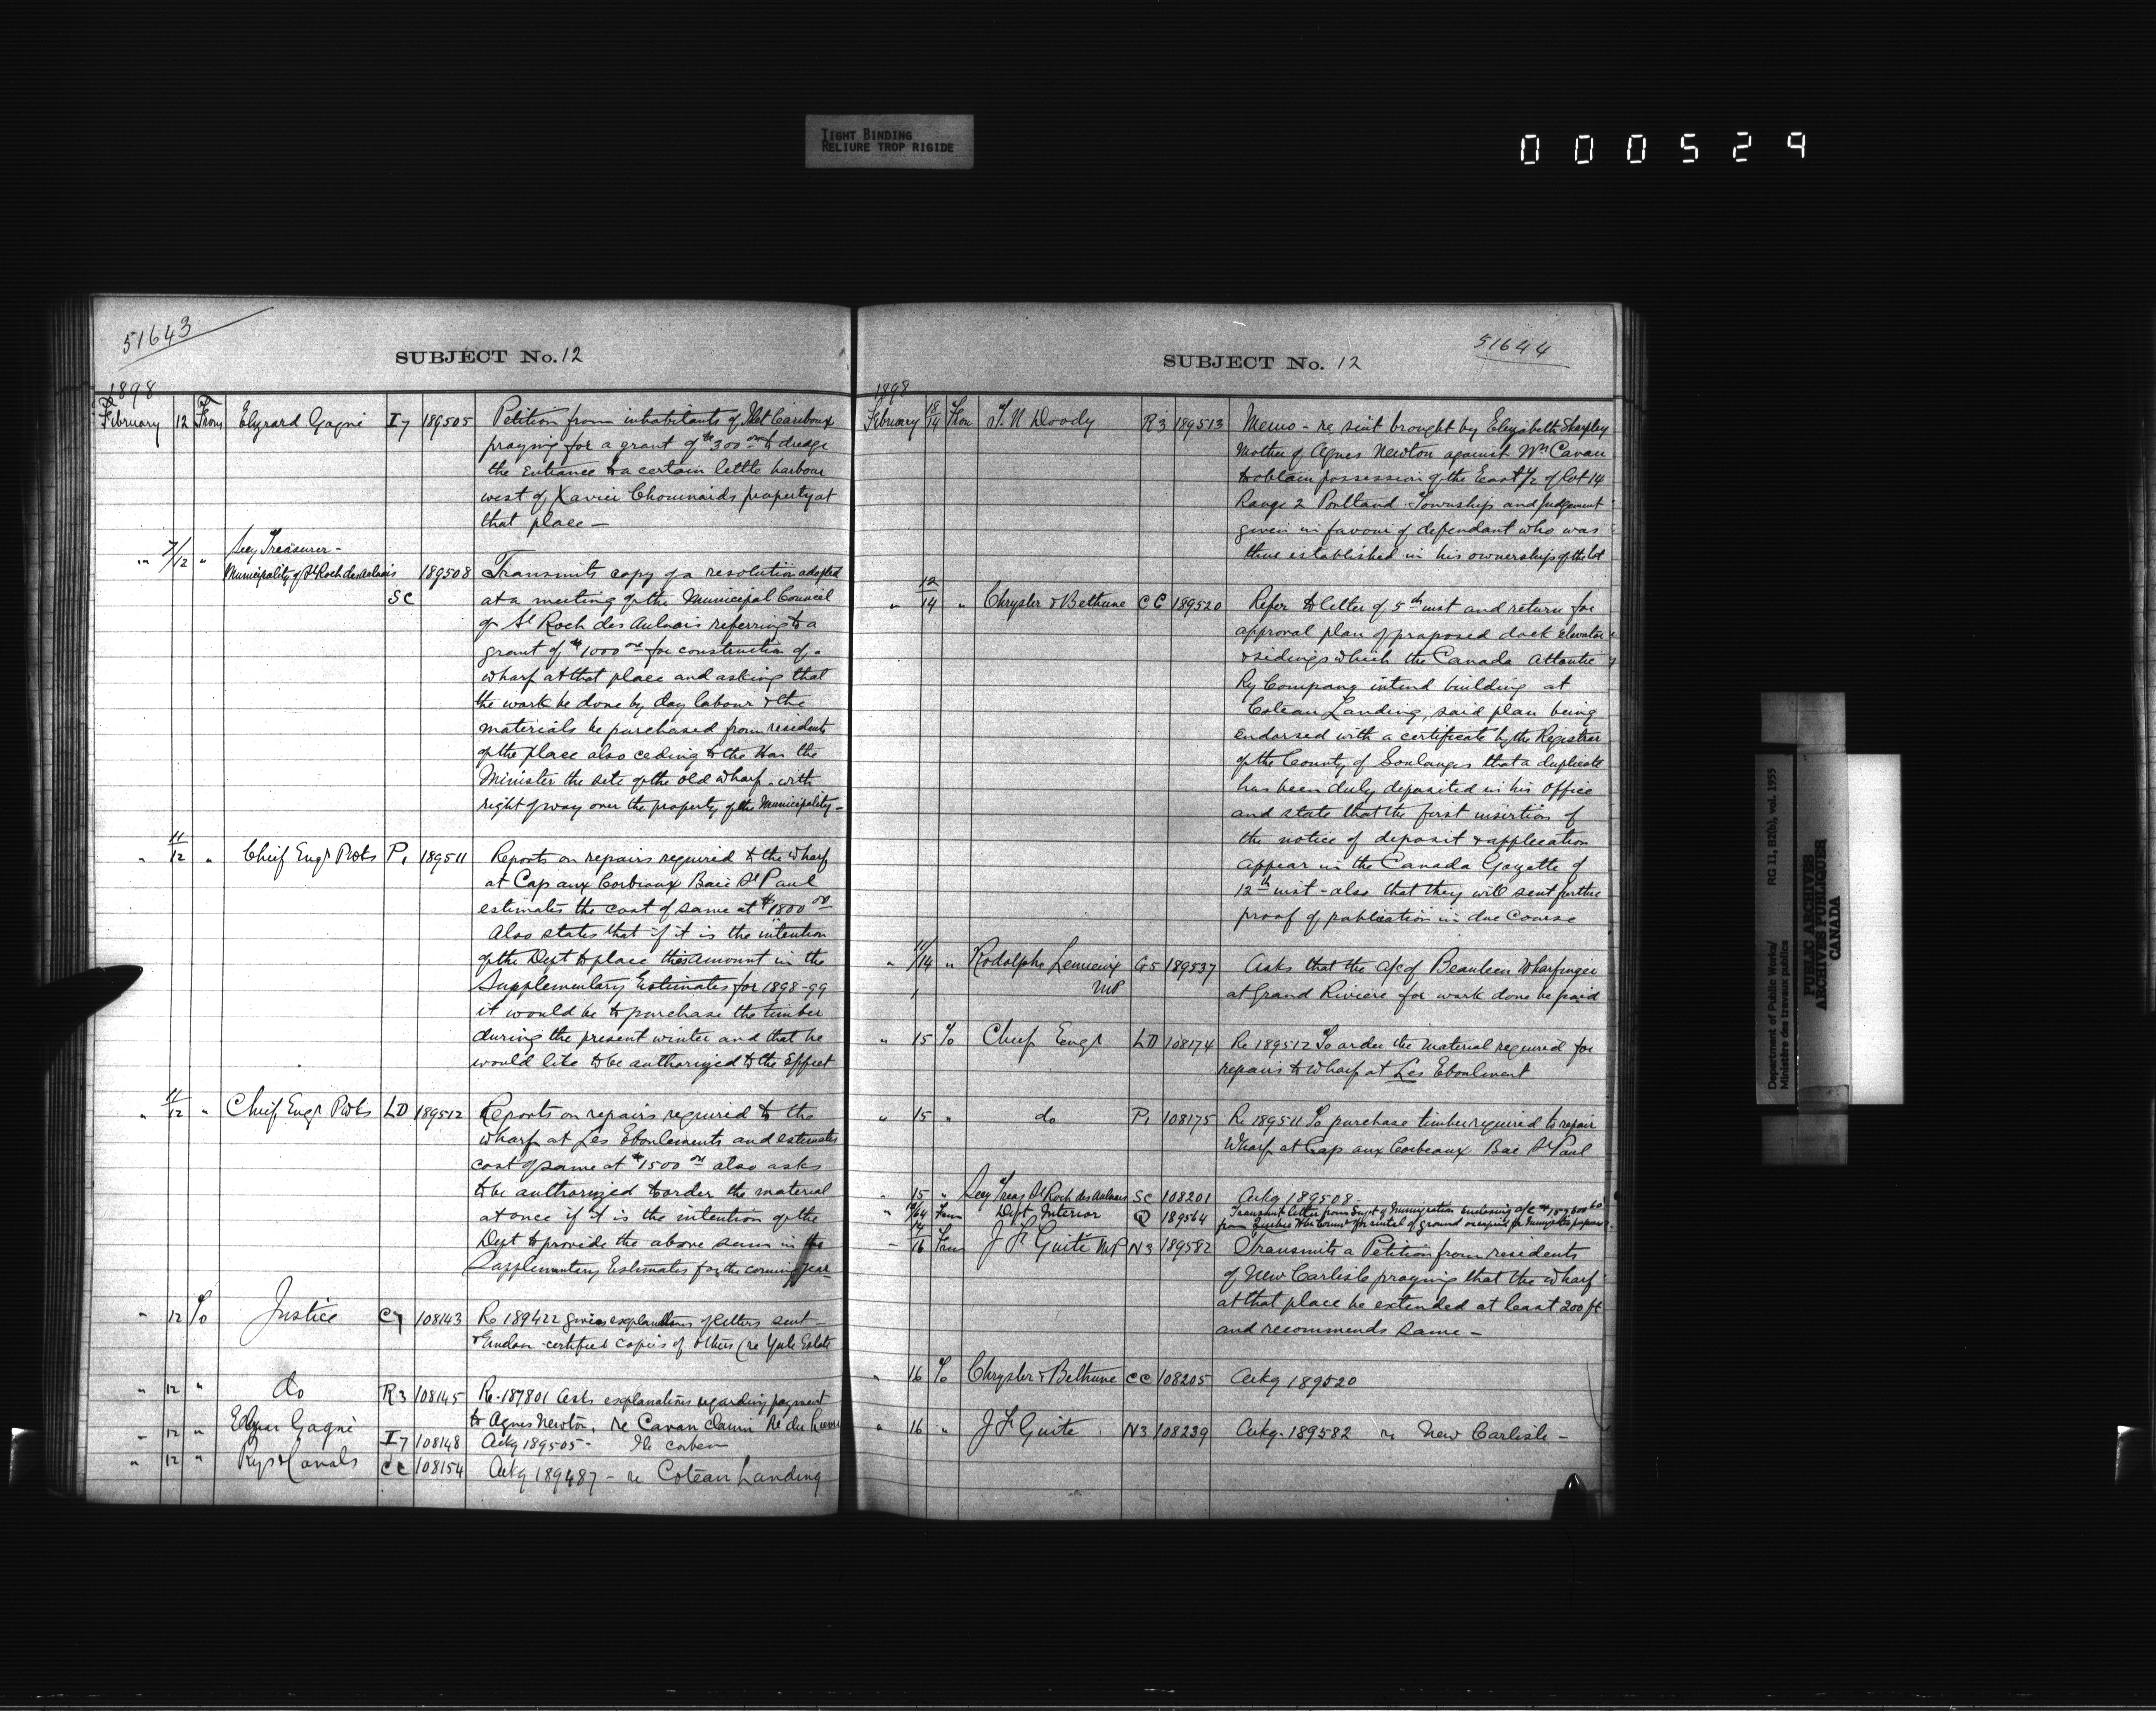 TIGHT BINDING
RELIURE TROP RIGIDE
000529
51643
SUBJECT No. 12
1898
February 12 From Elzéard Gagné I7 189505 Petition from inhabitants of Ilet Cariboux
praying for a grant of $300 00 to dredge
the entrance to a certain little harbour
west of Xavier Chouinards property at
that place —
" 7/12 " Secy Treasurer -
Municipality of St Roch des Aulnais SC 189508 Transmits copy of a resolution adopted
at a meeting of the Municipal Council
of St Roch des Aulnais referring to a
grant of $1000 00 for construction of a
wharf at that place and asking that
the work be done by day labour & the
materials be purchased from residents
of the place also ceding to the Hon the
Minister the site of the old wharf with
right of way over the property of the Municipality -
" 11/12 " Chief Engr P1 189511 Reports on repairs required to the wharf
at Cap aux Corbeaux Baie St Paul
estimates the cost of same at $1800 00
Also states that if it is the intention
of the Dept to place this amount in the
Supplementary Estimates for 1898-99
it would be to purchase the timber
during the present winter and that he
would like to be authorized to the effect
" 11/12 " Chief Engr LD 189512 Reports on repairs required to the
wharf at Les Eboulements and estimates
cost of same at $1500 00 also asks
to be authorized to order the material
at once if it is the intention of the
Dept to provide the above sum in the
Supplementary Estimates for the coming year
" 12 To Justice C7 108143 Re 189422 gives explanations of letters sent -
& certified copies of others (re Yule Estate
" 12 " do R3 108145 Re 187801 Asks explanations regarding payment
to Agnes Newton, re Cavan claim
" 12 " Gagné I7 108148 Ackg 189505 -
" 12 " Rys & Canals CC 108154 Ackg 189487 - re Coteau Landing
51644
SUBJECT No. 12
1898
February 12/14 From T. N. Doody R3 189513 Memo - re suit brought by Elizabeth Sharpley
Mother of Agnes Newton against Wm Cavan
to obtain possession of the East 1/2 of lot 14
Range 2 Portland Township and judgement
given in favour of defendant who was
thus established in his ownership of the lot
" 12/14 " Chrysler & Bethune CC 189520 Refer to letter of 5th inst and return for
approval plan of proposed dock elevator
& sidings which the Canada Atlantic
Ry Company intend building at
Coteau Landing, said plan being
endorsed with a certificate by the Registrar
of the County of Soulanges that a duplicate
has been duly deposited in his office
and state that the first insertion of
the notice of deposit & application
appear in the Canada Gazette of
12th inst - also that they will sent further
proof of publication in due course
" 11/14 " Rodolphe Lemieux MP G5 189537 Asks that the a/c of Beaulieu Wharfinger
at Grand Riviere for work done be paid
" 15 To Chief Engr LD 108174 Re 189512 To order the material required for
repairs to wharf at Les Eboulement
" 15 " do P1 108175 Re 189511 To purchase timber required to repair
Wharf at Cap aux Corbeaux Baie St Paul
" 15 " Secy Treas St Roch des Aulnais SC 108201 Ackg 189508 -
" From Dept Interior Q 189564 Transmit letter from Supt of Immigration enclosing a/c
from Quebec for rental of ground occupied for Immigration purposes
" 14/16 From J F Guité MP N3 189582 Transmits a Petition from residents
of New Carlisle praying that the wharf
at that place be extended at least 200 ft
and recommends same -
" 16 To Chrysler & Bethune CC 108205 Ackg 189520
" 16 " J F Guite N3 108239 Ackg. 189582 re New Carlisle -
Department of Public Works/ RG 11, B2(b), vol. 1955
Ministère des travaux publics
PUBLIC ARCHIVES
ARCHIVES PUBLIQUES
CANADA